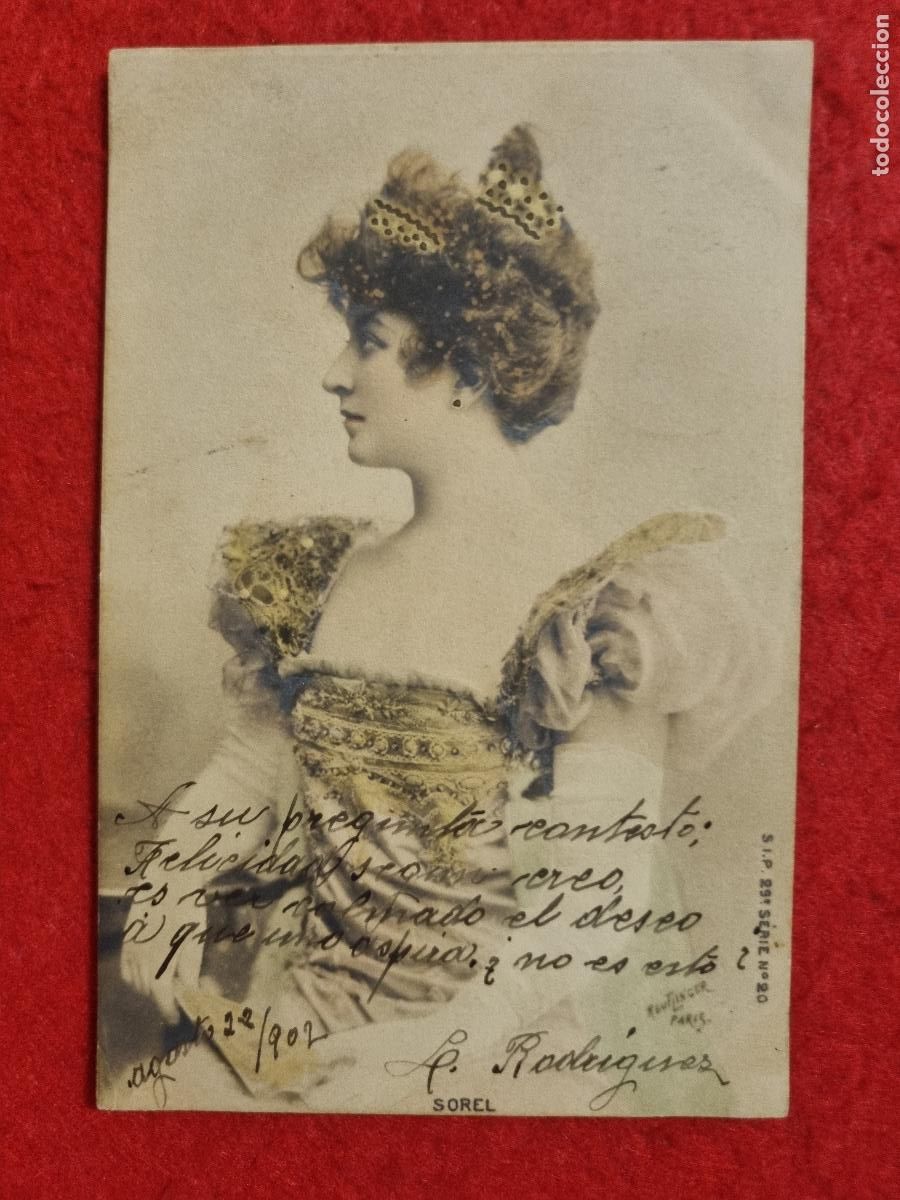 todocoleccion
A su pregunta contesto;
Felicidad segun creo,
es ver colmado el deseo
á que uno aspira. ¿no es esto?
agosto 22/902
L. Rodriguez
SOREL
REUTLINGER
PARIS.
S.I.P. 29e SÉRIE No 20